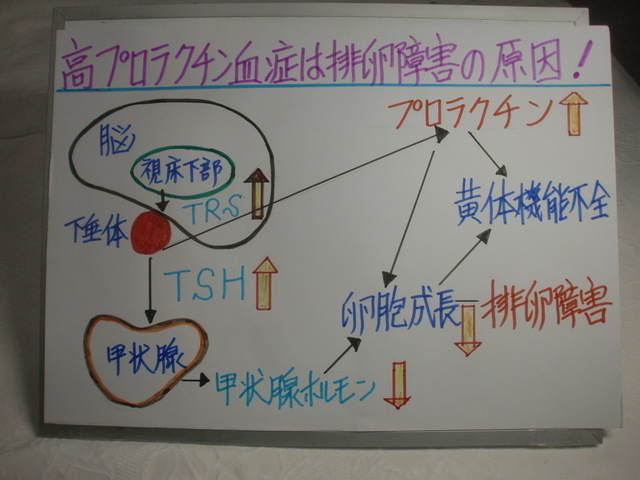 高プロラクチン血症は排卵障害の原因!
プロラクチン
脳
視床下部
TR-S
下垂体
黄体機能不全
TSH
卵胞成長
排卵障害
甲状腺
甲状腺ホルモン